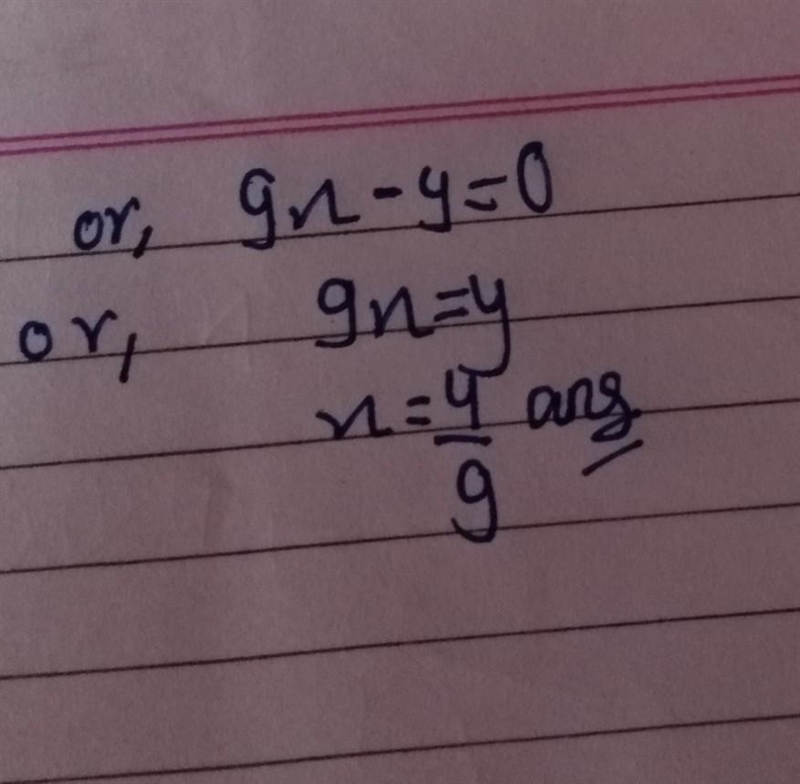 or, 9x - y = 0
or, 9x = y
x = y/9 ans